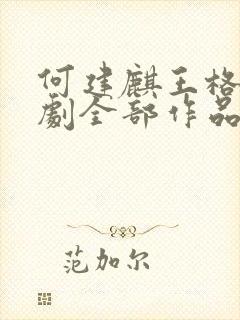 何建麒王格
劇全部作品
范加尔